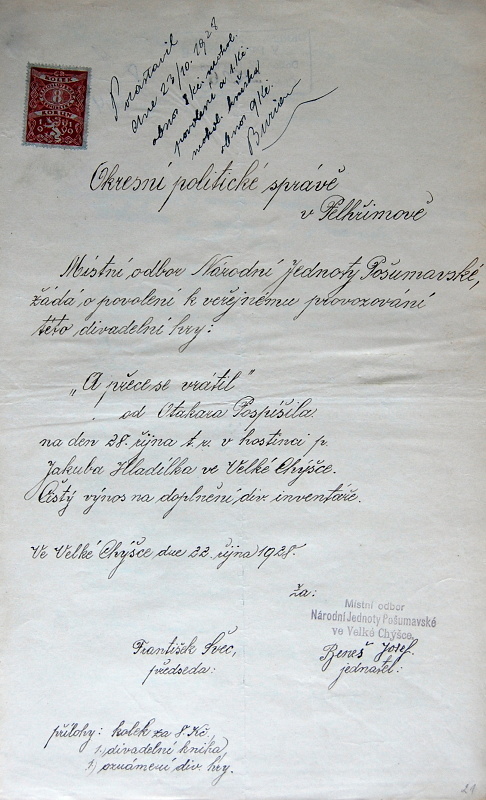 KOLEK
Potostavil
dne 23/10. 1928
obnos 8 Kč. mohol.
povolení a 1 Kč.
mohol. knížka
obnos 9 Kč.
Burian
Okresní politické správě
v Pelhřimově
Místní odbor Národní Jednoty Pošumavské,
žádá o povolení k veřejnému provozování
této divadelní hry:
„A přece se vrátil"
od Otakara Pospíšila
na den 28. října t. r. v hostinci p.
Jakuba Hladílka ve Velké Chýšce.
Čistý výnos na doplnění div. inventáře.
Ve Velké Chýšce dne 22. října 1928.
Za:
Místní odbor
Národní Jednoty Pošumavské
ve Velké Chýšce.
František Švec,
předseda:
Beneš Josef.
jednatel:
přílohy: kolek za 8 Kč,
1) divadelní kniha,
1) oznámení div. hry.
21